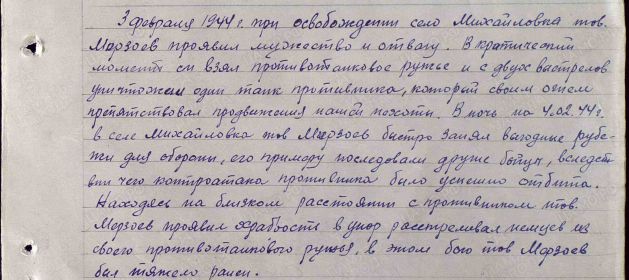 3 февраля 1944 г. при освобождении село Михайловка тов.
Мерзоев проявил мужество и отвагу. В критический
момент он взял противотанковое ружье и с двух выстрелов
уничтожен один танк противника, который своим огнем
препятствовал продвижения нашей пехоты. В ночь на 4.02.44 г.
в селе Михайловка тов Мерзоев быстро занял выгодные рубе-
жи для обороны, его примеру последовали другие бойцы, вследст
вии чего контратака противника было успешно отбита.
Находясь на близком расстоянии с противником тов.
Мерзоев проявил храбрость в упор расстреливал немцев из
своего противотанкового ружья, в этом бою тов Мерзоев
был тяжело ранен.